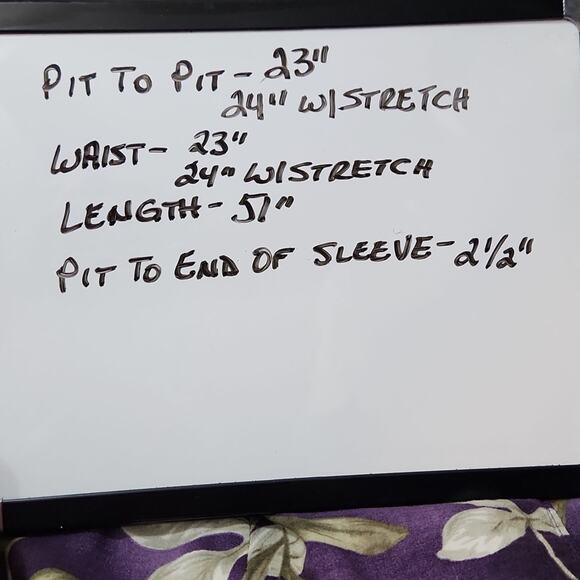 PIT TO PIT - 23"
24" W/STRETCH
WAIST - 23"
24" W/STRETCH
LENGTH - 51"
PIT TO END OF SLEEVE - 2 1/2"